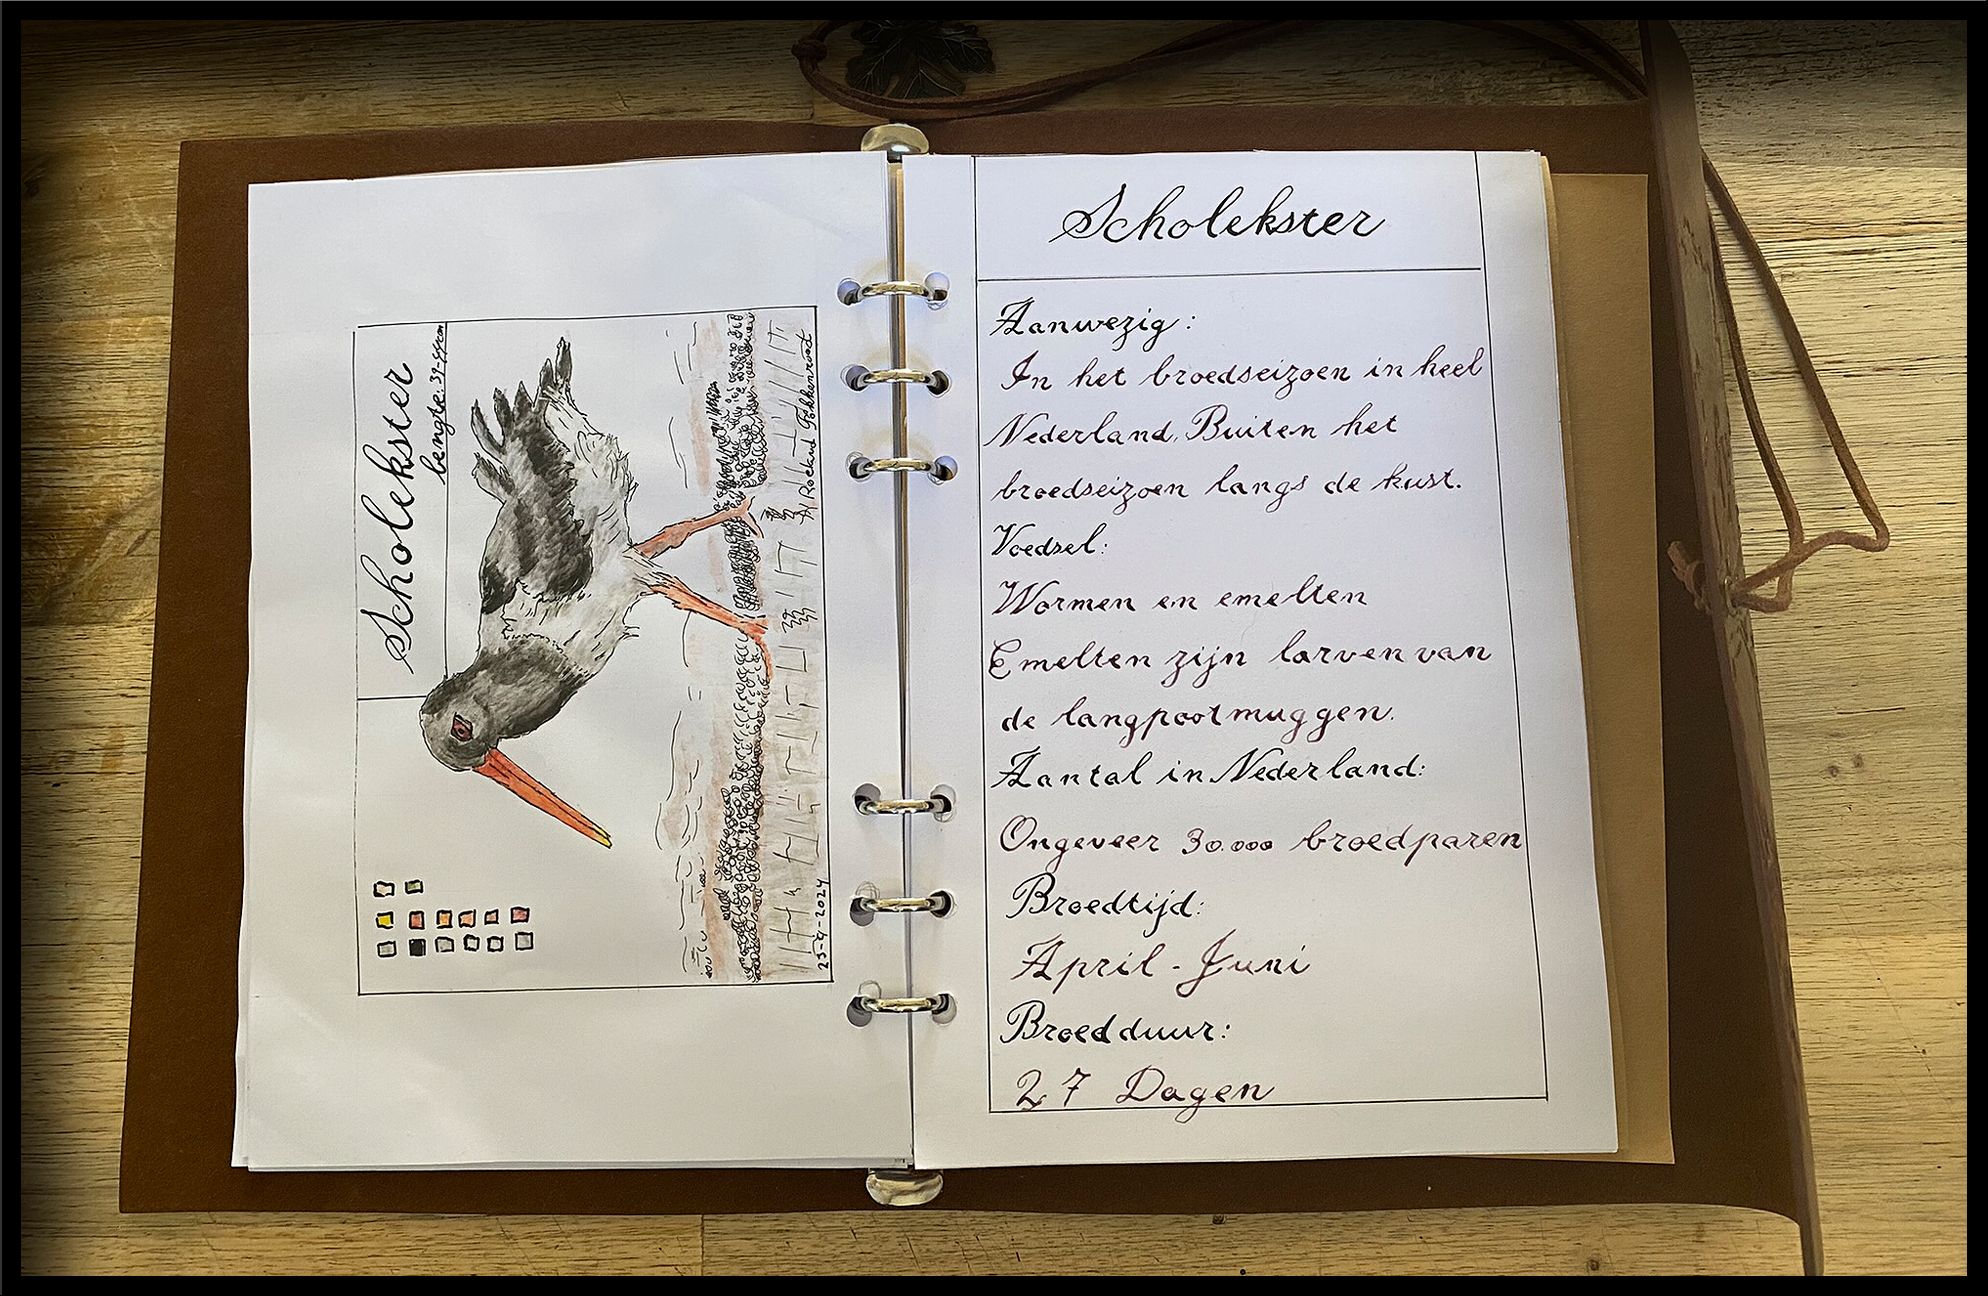 Scholekster
Lengte: 39-44cm
23-4-2024
Scholekster
Aanwezig:
In het broedseizoen in heel
Nederland. Buiten het
broedseizoen langs de kust.
Voedsel:
Wormen en emelten
Emelten zijn larven van
de langpootmuggen.
Aantal in Nederland:
Ongeveer 30.000 broedparen
Broedtijd:
April - Juni
Broedduur:
27 Dagen